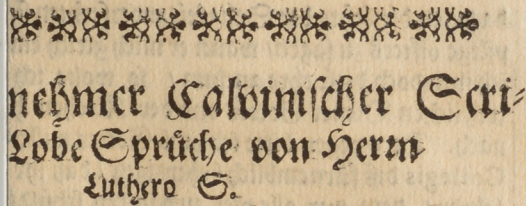 nehmer Calvinischer Scri-
Lobe Sprüche von Herrn
Luthero S.